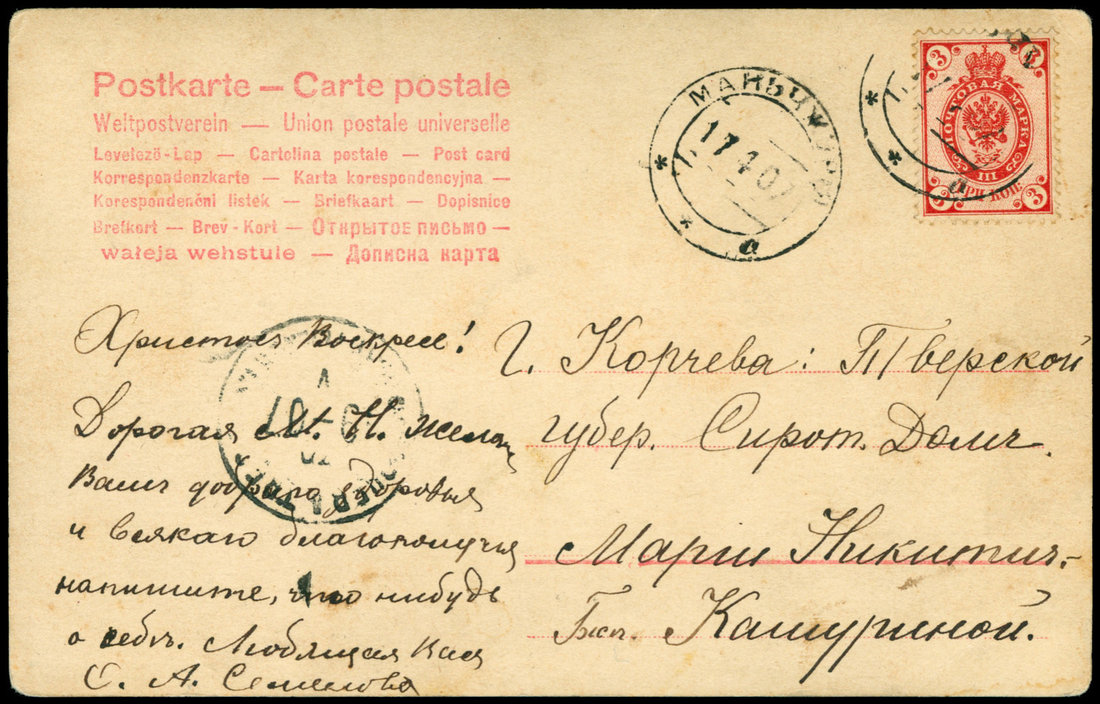 Postkarte — Carte postale
Weltpostverein — Union postale universelle
Levelező-Lap — Cartolina postale — Post card
Korrespondenzkarte — Karta korespondencyjna —
Korespondenční lístek — Briefkaart — Dopisnice
Brefkort — Brev-Kort — Открытое письмо —
wałeja wehstule — Дописна карта
МАНЬЧЖУР
17 4 07
а
3 3
ПОЧТОВАЯ МАРКА
III
3 ТРИ КОП 3
а
Христосъ Воскресе!
Дорогая М. Н. желаю
Вамъ добраго здоровья
и всякаго благополучья
напишите, что нибудь
о себѣ. Любящая Васъ
С. А. Семенова
07
Г. Корчева: Тверской
губер. Сирот. Домъ.
Марiи Никитич.-
Кашуриной.